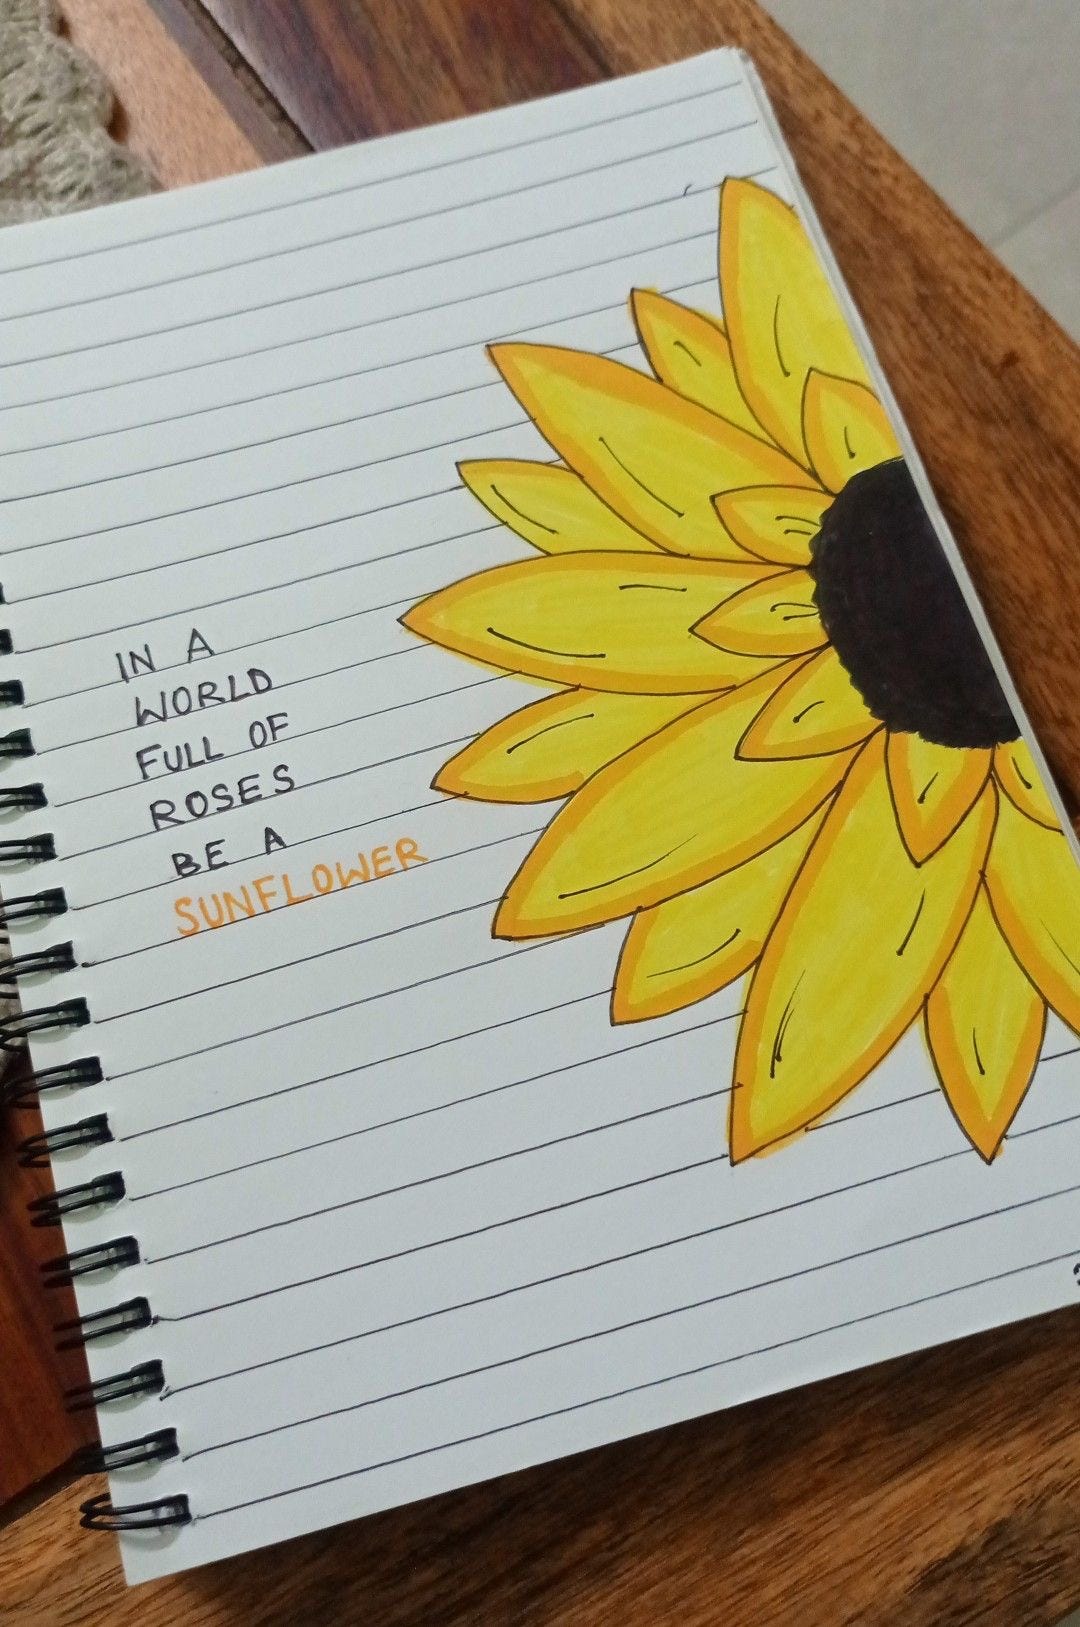 IN A
WORLD
FULL OF
ROSES
BE A
SUNFLOWER